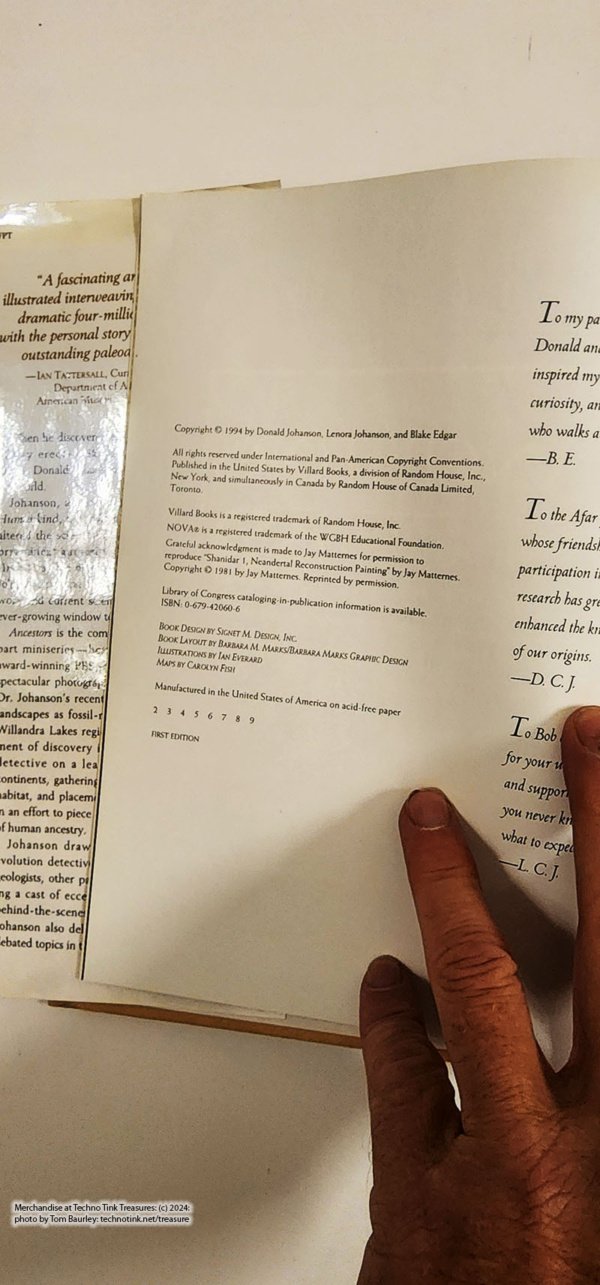 "A fascinating
illustrated
dramatic
with the personal story
outstanding
—IAN TATTERSALL,
Department of
American
Donald
Johanson,
current
ever-growing window
Ancestors is the com
part miniseries
award-winning
spectacular
Dr. Johanson's recent
landscapes as
Willandra Lakes
of discovery
detective on a
continents, gathering
habitat, and
in an effort to piece
of human ancestry.
Johanson draw
other
ng a cast of
behind-the-scene
Johanson also
debated topics in
Copyright © 1994 by Donald Johanson, Lenora Johanson, and Blake Edgar
All rights reserved under International and Pan-American Copyright Conventions.
Published in the United States by Villard Books, a division of Random House, Inc.,
New York, and simultaneously in Canada by Random House of Canada Limited,
Toronto.
Villard Books is a registered trademark of Random House, Inc.
NOVA® is a registered trademark of the WGBH Educational Foundation.
Grateful acknowledgment is made to Jay Matternes for permission to
reproduce "Shanidar 1, Neandertal Reconstruction Painting" by Jay Matternes.
Copyright © 1981 by Jay Matternes. Reprinted by permission.
Library of Congress cataloging-in-publication information is available.
ISBN: 0-679-42060-6
BOOK DESIGN BY SIGNET M. DESIGN, INC.
BOOK LAYOUT BY BARBARA M. MARKS/BARBARA MARKS GRAPHIC DESIGN
ILLUSTRATIONS BY IAN EVERARD
MAPS BY CAROLYN FISH
Manufactured in the United States of America on acid-free paper
2 3 4 5 6 7 8 9
FIRST EDITION
To my pa
Donald an
inspired my
curiosity, an
who walks a
—B. E.
To the Afar
whose friendsh
participation i
research has gre
enhanced the kn
of our origins.
—D. C. J.
To Bob
for your
and suppor
you never kn
what to expec
—L. C. J.
Merchandise at Techno Tink Treasures: (c) 2024:
photo by Tom Baurley: technotink.net/treasure